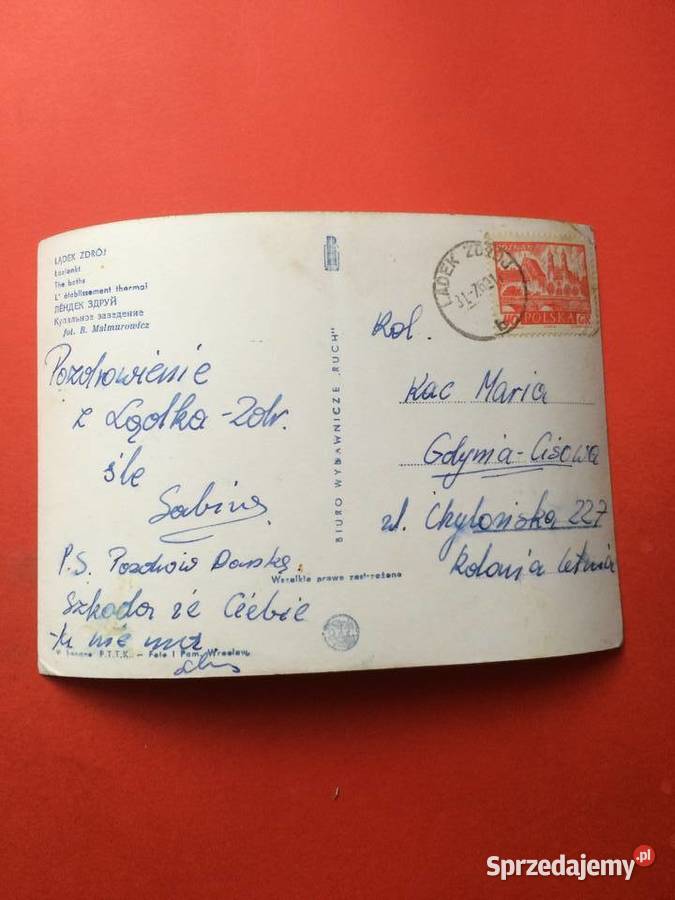 LĄDEK ZDRÓJ
Łazienki
The baths
L' établissement thermal
ЛЁНДЕК ЗДРУЙ
Купальное заведение
fot. B. Malmurowicz
Pozdrowienie
z Lądka-Zdr.
śle
Sabina
P.S. Pozdrów Danską
Szkoda że Ciebie
tu nie ma
P.T.T.K. — Foto I Pam. Wrocław
BIURO WYDAWNICZE „RUCH"
Wszelkie prawa zastrzeżone
LĄDEK ZDRÓJ
POZNAŃ
POLSKA
Kol.
Kac Maria
Gdynia-Cisowa
ul. Chylońska 227
Kolonia letnia
Sprzedajemy.pl